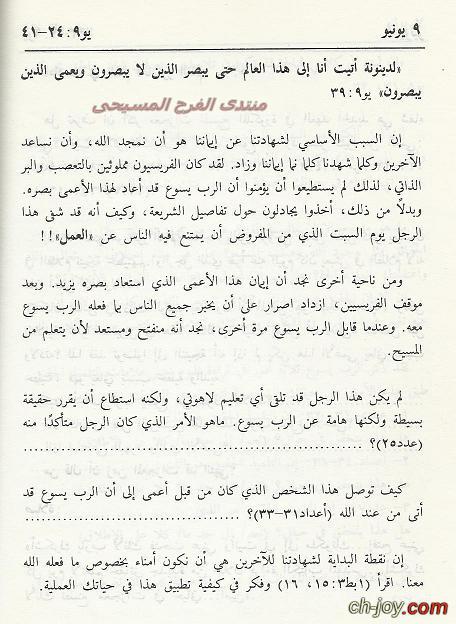 ٩ يونيو يو٩: ٢٤-٤١
«لدينونة أتيت أنا إلى هذا العالم حتى يبصر الذين لا يبصرون ويعمى الذين
يبصرون» يو٩: ٣٩
منتدى الفرح المسيحى
إن السبب الأساسي لشهادتنا عن إيماننا هو أن نمجد الله، وأن نساعد
الآخرين وكلما شهدنا كلما نما إيماننا وزاد. لقد كان الفريسيون مملوئين بالتعصب والبر
الذاتي، لذلك لم يستطيعوا أن يؤمنوا أن الرب يسوع قد أعاد لهذا الأعمى بصره.
وبدلاً من ذلك، أخذوا يجادلون حول تفاصيل الشريعة، وكيف أنه قد شفى هذا
الرجل يوم السبت الذي من المفروض أن يمتنع فيه الناس عن «العمل»!!
ومن ناحية أخرى نجد أن إيمان هذا الأعمى الذي استعاد بصره يزيد. وبعد
موقف الفريسيين، ازداد اصرار على أن يخبر جميع الناس بما فعله الرب يسوع
معه. وعندما قابل الرب يسوع مرة أخرى، نجد أنه منفتح ومستعد لأن يتعلم من
المسيح.
لم يكن هذا الرجل قد تلقى أي تعليم لاهوتي، ولكنه استطاع أن يقرر حقيقة
بسيطة ولكنها هامة عن الرب يسوع. ماهو الأمر الذي كان الرجل متأكدًا منه
(عدد٢٥)؟ ..................................................
كيف توصل هذا الشخص الذي كان من قبل أعمى إلى أن الرب يسوع قد
أتى من عند الله (أعداد٣١-٣٣)؟ ..............................
إن نقطة البداية لشهادتنا للآخرين هي أن نكون أمناء بخصوص ما فعله الله
معنا. اقرأ (١بط٣: ١٥، ١٦) وفكر في كيفية تطبيق هذا في حياتك العملية.
ch-joy.com